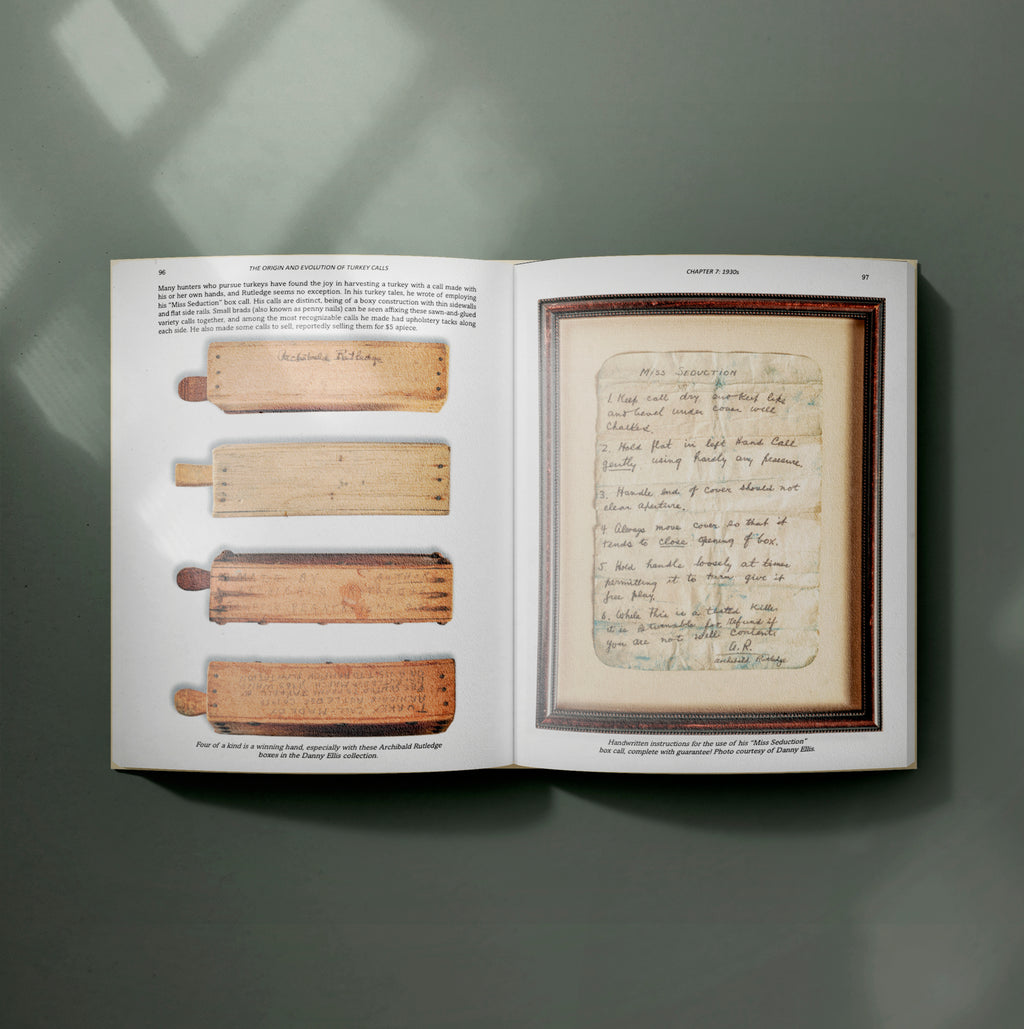 96
THE ORIGIN AND EVOLUTION OF TURKEY CALLS
Many hunters who pursue turkeys have found the joy in harvesting a turkey with a call made with
his or her own hands, and Rutledge seems no exception. In his turkey tales, he wrote of employing
his “Miss Seduction” box call. His calls are distinct, being of a boxy construction with thin sidewalls
and flat side rails. Small brads (also known as penny nails) can be seen affixing these sawn-and-glued
variety calls together, and among the most recognizable calls he made had upholstery tacks along
each side. He also made some calls to sell, reportedly selling them for $5 apiece.
Archibald Rutledge
Four of a kind is a winning hand, especially with these Archibald Rutledge
boxes in the Danny Ellis collection.
CHAPTER 7: 1930s
97
MISS SEDUCTION
1. Keep call dry and keep
and bevel under cover well
chalked.
2. Hold flat in left Hand Call
gently using hardly any pressure.
3. Handle end of cover should not
clear aperture.
4 Always move cover so that it
tends to close opening of box.
5. Hold handle loosely at times
permitting it to turn give it
free play.
6. While This is a tested Killer
it is returnable for refund if
you are not well content
A.R.
Archibald Rutledge
Handwritten instructions for the use of his “Miss Seduction”
box call, complete with guarantee! Photo courtesy of Danny Ellis.